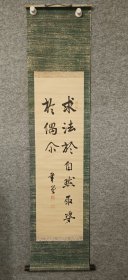 求法於自然取姿
於偶尓